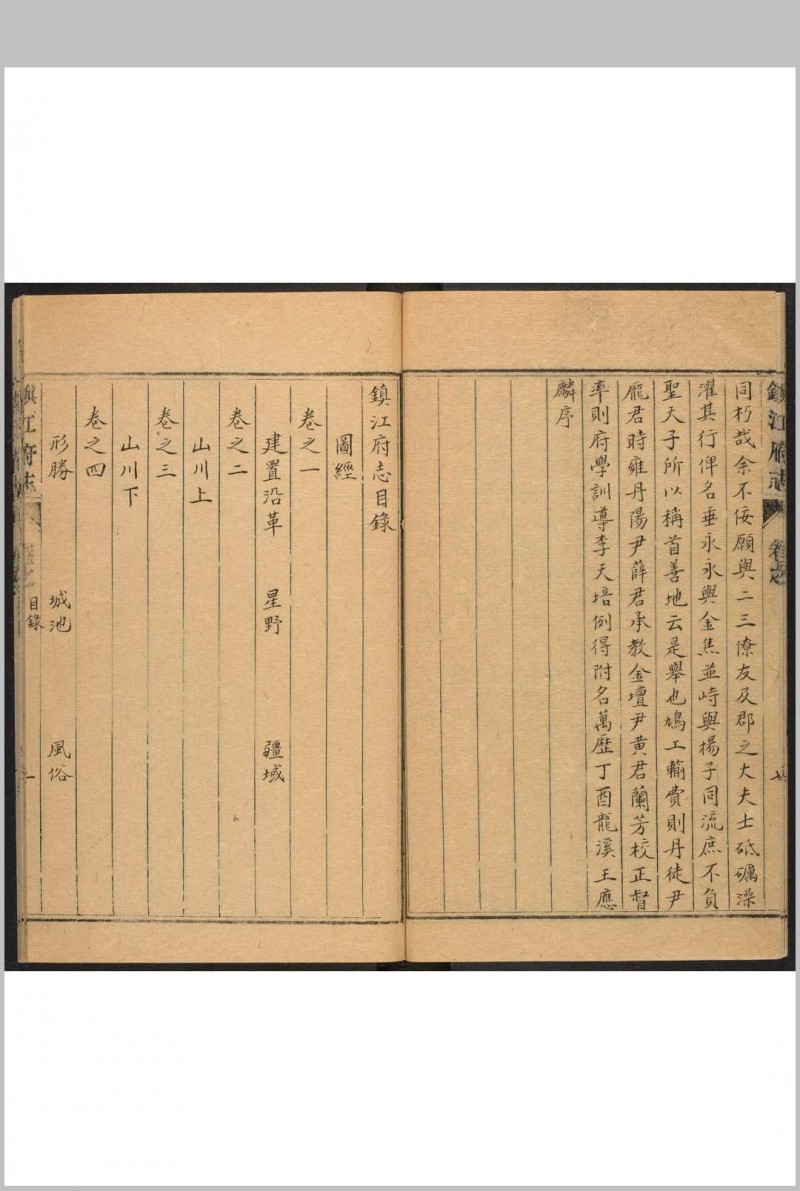 鎮江府志
同朽哉余不佞願與二三僚友及郡之大夫士砥礪澡
濯其行俾名垂永永與金焦並峙與楊子同流庶不負
聖天子所以稱首善地云是舉也鳩工輸費則丹徒尹
龐君時雍丹陽尹薛君承教金壇尹黃君蘭芳校正督
率則府學訓導李天培例得附名萬歷丁酉龍溪王應
麟序
鎮江府志目錄
圖經
卷之一
建置沿革 星野 疆域
卷之二
山川上
卷之三
山川下
卷之四
形勝 城池 風俗
鎮江府志 目錄 一